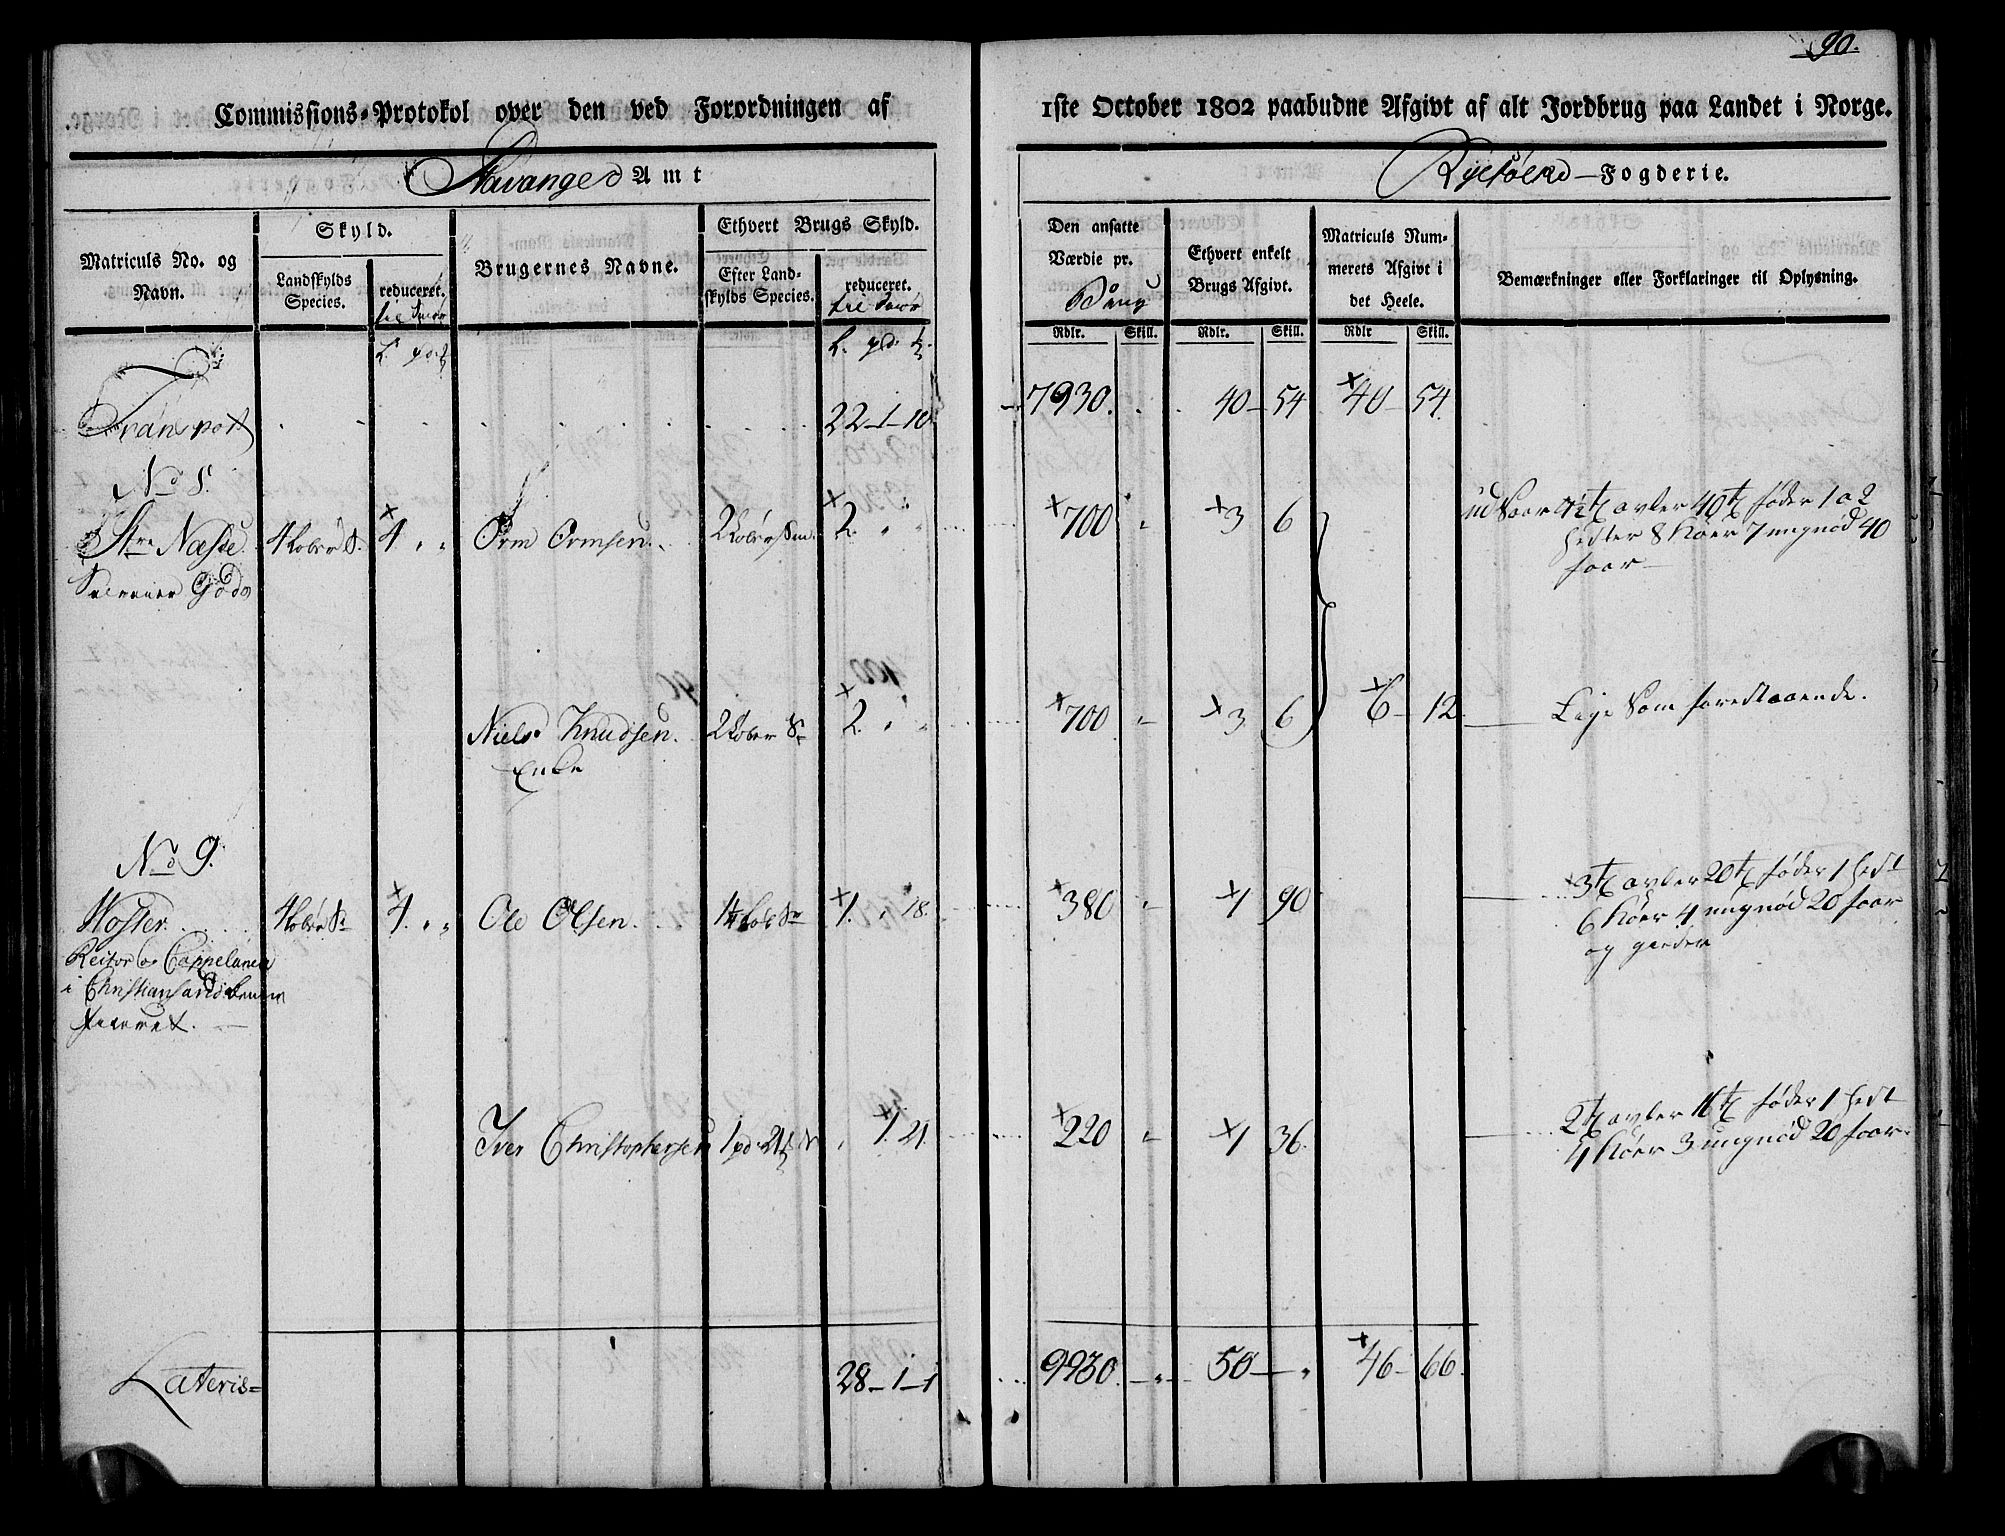 90.
Commissions-Protokol over den ved Forordningen af 1ste October 1802 paabudne Afgivt af alt Jordbrug paa Landet i Norge.
Stavanger Amt
Ryefølke Fogderie.
Matriculs No. og Navn.
Skyld.
Landskylds Species.
reduceret. til Smør
Brugernes Navne.
Ethvert Brugs Skyld.
Efter Landskylds Species.
reduceret. til Smør
Den ansatte Værdie pr. Brug
Ethvert enkelt Brugs Afgivt.
Matriculs Nummerets Afgivt i det Heele.
Bemærkninger eller Forklaringer til Oplysning.
Rdlr. Skill. Rdlr. Skill. Rdlr Skill.
L. pd.
L. pd.
Transport 22-1-10 7930. 40-54 40-54
No 8.
Stre Næsse 4 4 Orm Ormsen 2 2. 700 3 6 avler 40 føder 1 a 2
Hester 8 Køer 7 ungnød 40
Gods faar
Niels Knudsen 2 2. 700 3 6 6-12 Lige som forestaaende.
Enke
No 9.
Hoster 4 4. Ole Olsen 1 1. 18. 380 1 90 3 avler 20 føder 1 Hest
Rector og Cappelanen 6 Køer 4 ungnød 20 faar
i Christiansand og geeder
Iver Christophersen 1 pd 21 1. 21. 220 1 36 2 avler 16 føder 1 Hest
4 Køer 3 ungnød 20 faar
Lateris= 28-1-1 9930 50 46-66